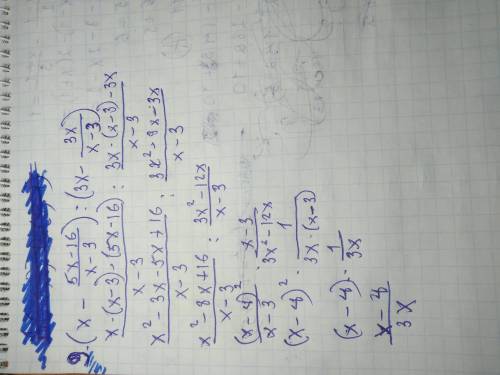 (x - (5x-16)/(x-3)) : (3x - 3x/(x-3))
(x·(x-3)-(5x-16))/(x-3) : (3x·(x-3)-3x)/(x-3)
(x²-3x-5x+16)/(x-3) : (3x²-9x-3x)/(x-3)
(x²-8x+16)/(x-3) : (3x²-12x)/(x-3)
(x-4)²/(x-3) · (x-3)/(3x²-12x)
(x-4)² · 1/(3x·(x-3))
(x-4) · 1/(3x)
(x-4)/(3x)